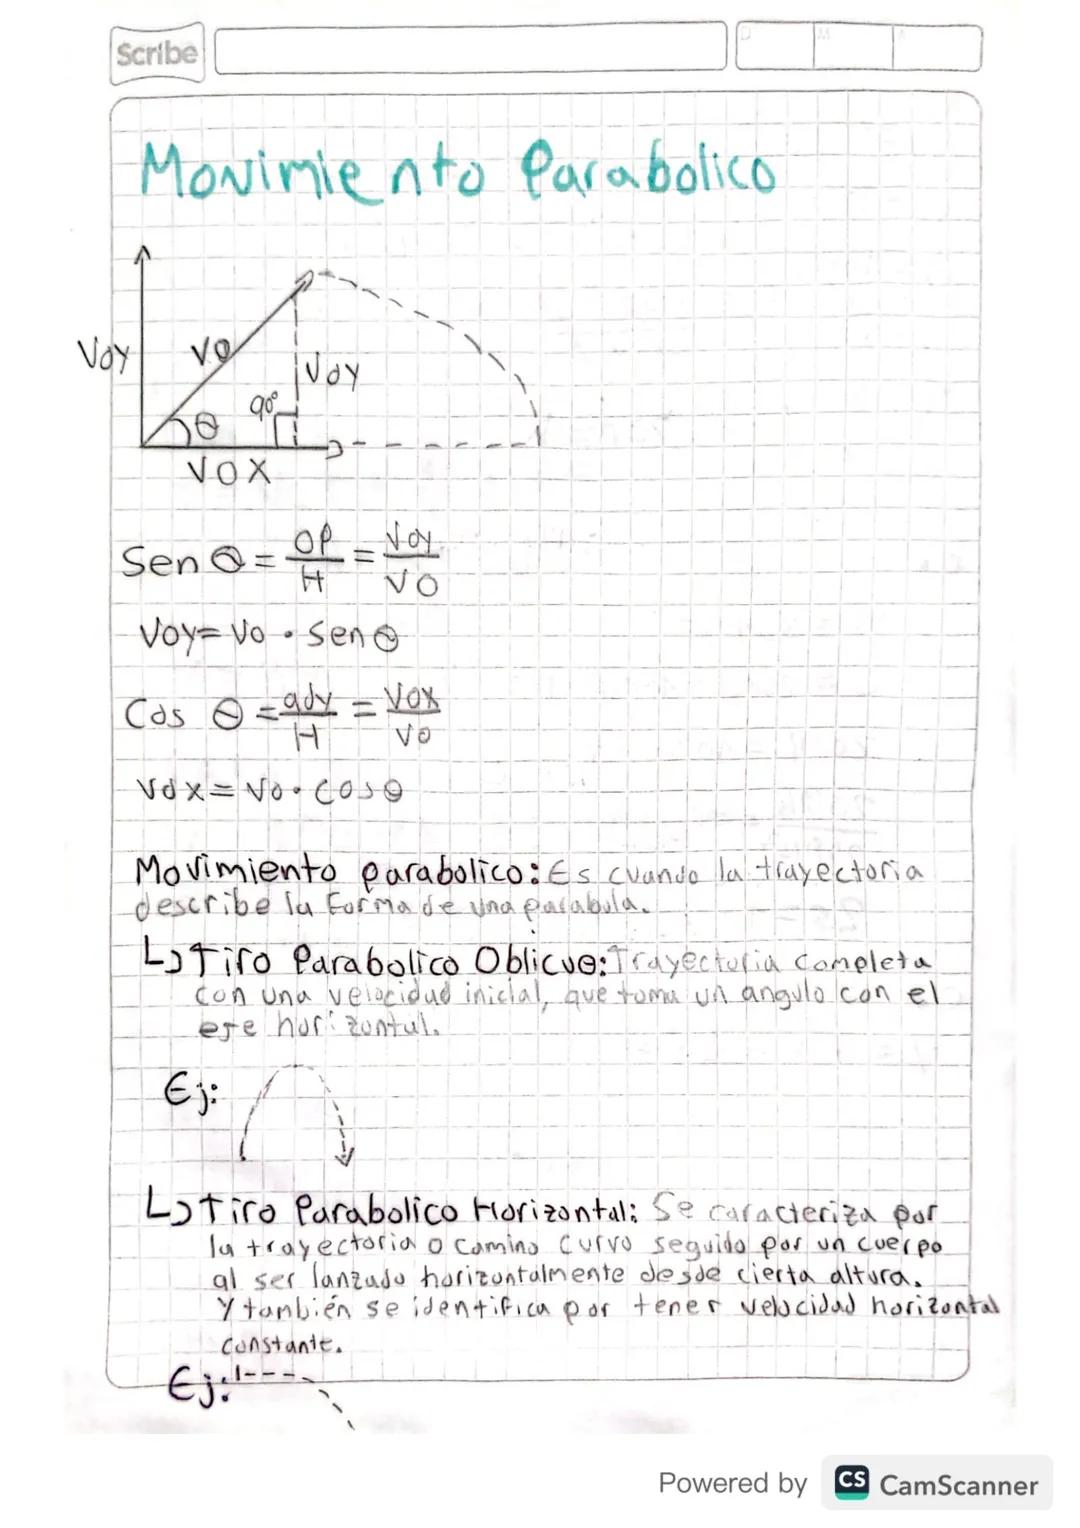 Scribe
D M A
Movimiento Parabolico
Voy
Vo
Voy
90°
θ
VOX
Sen θ = OP/H = Voy/VO
Voy = Vo · Sen θ
Cos θ = ady/H = Vox/Vo
Vox = Vo · Cos θ
Movimiento parabolico: Es cuando la trayectoria
describe la forma de una parabula.
Tiro Parabolico Oblicuo: Trayectoria completa
con una velocidad inicial, que toma un angulo con el
eje horizontal.
Ej:
Tiro Parabolico Horizontal: Se caracteriza por
la trayectoria o camino curvo seguido por un cuerpo
al ser lanzado horizontalmente desde cierta altura.
Y también se identifica por tener velocidad horizontal
constante.
Ej:
Powered by CS CamScanner